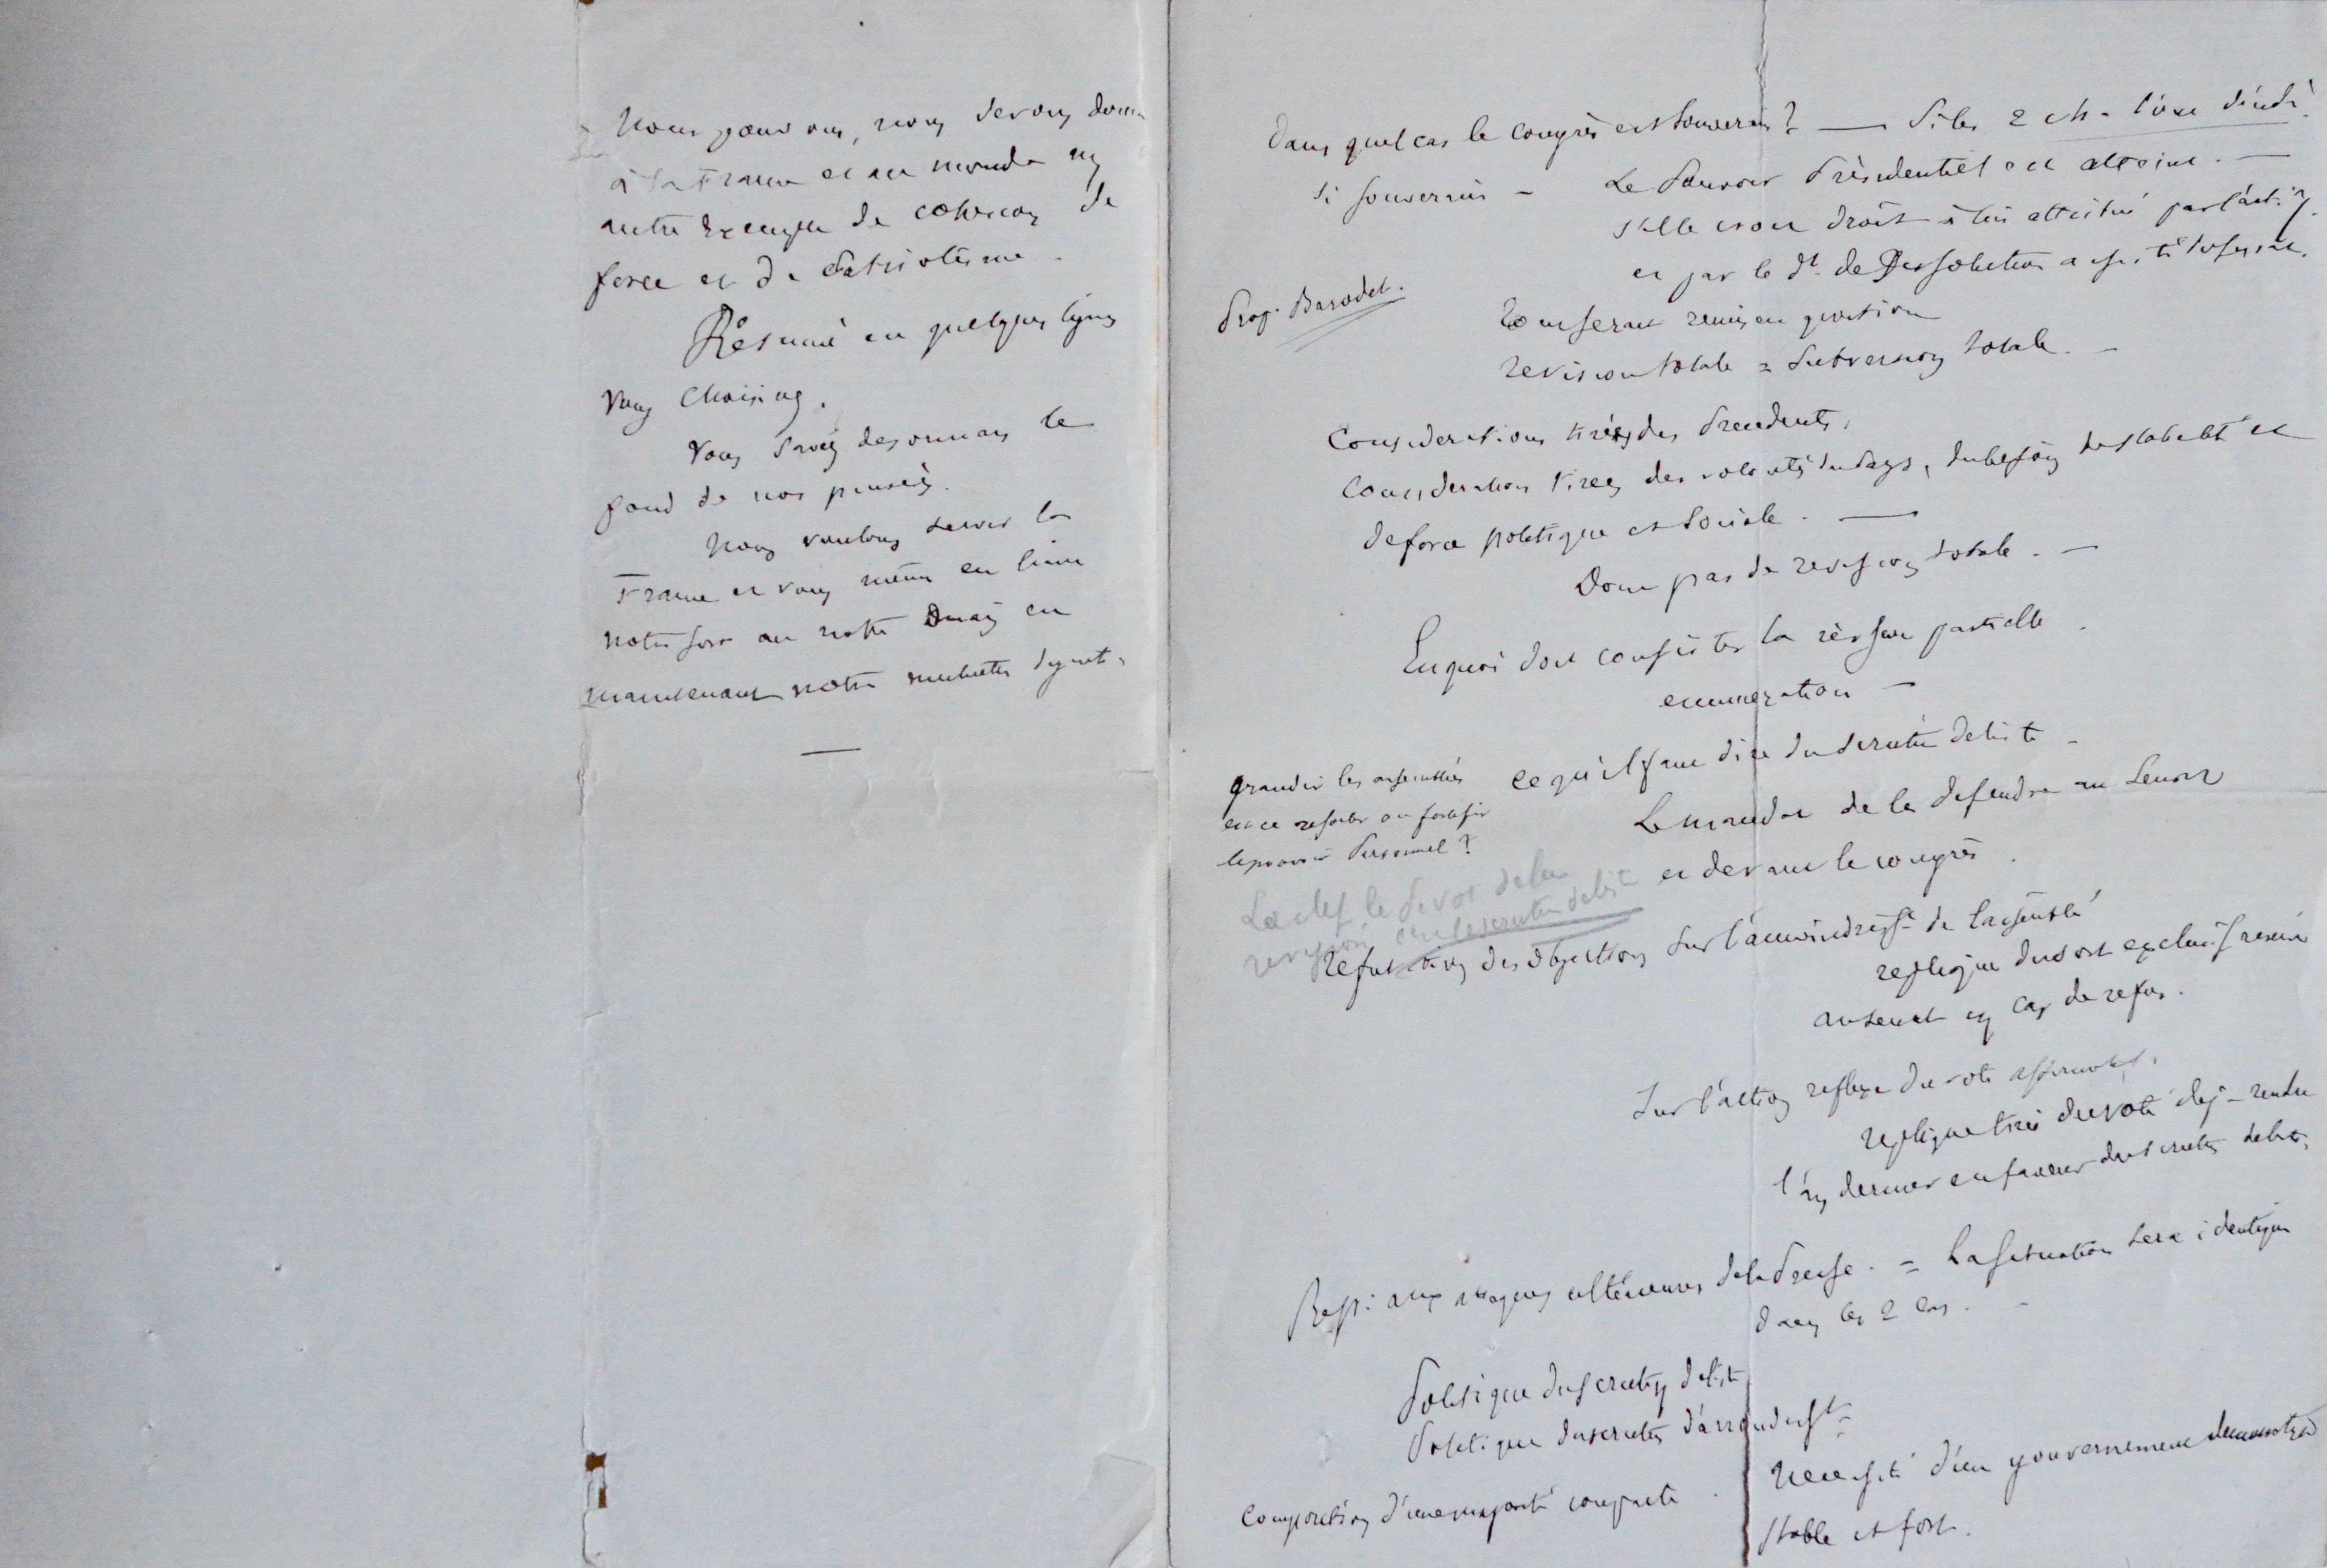 Nous pouvons, nous devons donner
à la France et au monde un
autre exemple de cohesion de
force et de Patriotisme.
Résumé en quelques lignes
Vous choisirez.
Vous savez desormais le
fond de nos pensées.
Nous voulons servir la
France et vous même en
notre notre en
maintenant notre dignité.
Dans quel cas le congrès est souverain? — Si les 2 ch. l'ont décidé
si souverain — Le Pouvoir Présidentiel est atteint. —
s'il le droit à lui attribué par l'art.
et par le dt. de Dissolution
Prop. Barodet.
Tout serait remis en question
revision totale = subversion totale. —
Considerations tirées des Precedents,
Consideration tirées des volontés du Pays, du besoin de stabilité et
de force politique et sociale. —
Donc pas de revision totale. —
En quoi doit consister la révision partielle.
enumeration —
grandir les assemblées
est ce refouler ou fortifier
le pouvoir Personnel?
ce qu'il faut dire du scrutin de liste —
Le mandat de le defendre au senat
et devant le congrès.
La clef le Pivot de la
revision c'est le scrutin de liste
Refutation des objections sur l'amoindrisst de l'assemblée
replique du sort exclusif reservé
au senat en cas de refus.
Sur l'action reflexe du vote affirmatif.
replique tirée du vote déjà rendu
l'an dernier en faveur du scrutin de liste,
Resp: aux attaques ulterieures de la Presse. = La situation sera identique
dans les 2 cas. —
Politique du scrutin de liste
Politique du scrutin d'arrondisst =
Composition d'une majorité compacte. Necessité d'un gouvernement democratique
stable et fort.